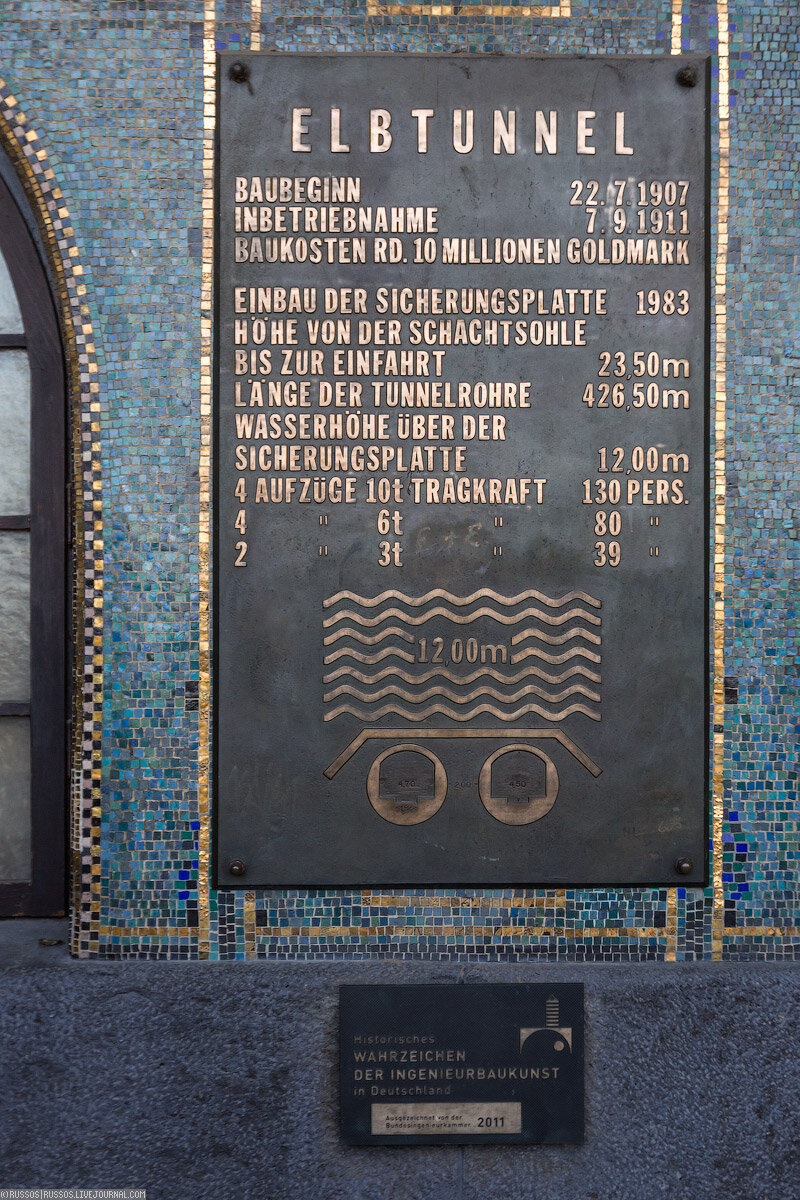 ELBTUNNEL
BAUBEGINN 22.7.1907
INBETRIEBNAHME 7.9.1911
BAUKOSTEN RD. 10 MILLIONEN GOLDMARK
EINBAU DER SICHERUNGSPLATTE 1983
HÖHE VON DER SCHACHTSOHLE
BIS ZUR EINFAHRT 23,50m
LÄNGE DER TUNNELROHRE 426,50m
WASSERHÖHE ÜBER DER
SICHERUNGSPLATTE 12,00m
4 AUFZÜGE 10t TRAGKRAFT 130 PERS.
4 " 6t " 80 "
2 " 3t " 39 "
12,00m
4.70 2.00 4.50
Historisches
WAHRZEICHEN
DER INGENIEURBAUKUNST
in Deutschland
Ausgezeichnet von der
Bundesingenieurkammer 2011
©RUSSOS|RUSSOS.LIVEJOURNAL.COM